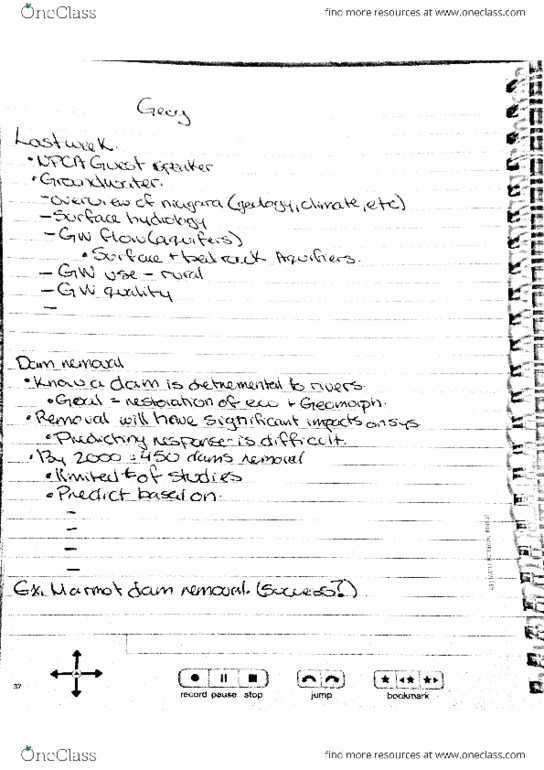 OneClass
find more resources at www.oneclass.com
Geog
Last week.
• NPCA Guest speaker
• Groundwater.
- overview of niagara (geology, climate, etc)
- Surface hydrology
- GW flow (aquifers)
• Surface + bed rock Aquifiers.
- GW use - rural
- GW quality
-
Dam removal
• Know a dam is detremental to rivers.
• Goal = restoration of eco + Geomorph.
• Removal will have significant impacts on sys
• Predicting response is difficult.
• By 2000 = 450 dams removal
• limited # of studies
• Predict based on.
-
-
-
-
Ex. Marmot dam removal. (success?)
37
record pause stop
jump
bookmark
OneClass
find more resources at www.oneclass.com